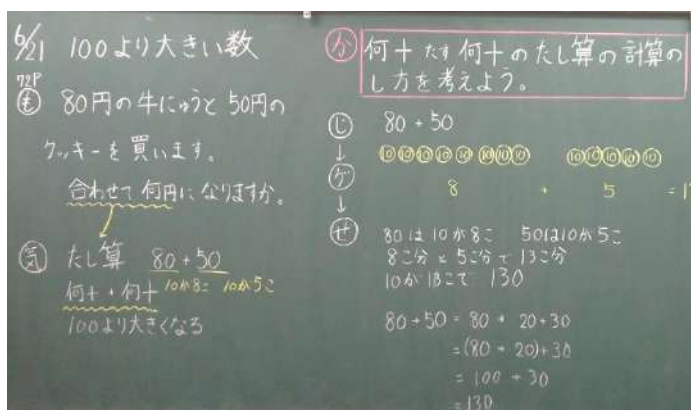 6/21 100より大きい数
72P
も 80円の牛にゅうと50円の
クッキーを買います。
合わせて何円になりますか。
気 たし算 80+50
何十+何十 10が8こ 10が5こ
100より大きくなる
か 何十たす何十のたし算の計算の
し方を考えよう。
じ 80+50
↓ ⑩⑩⑩⑩⑩⑩⑩⑩ ⑩⑩⑩⑩⑩
グ 8 + 5 = 1
↓
ぜ 80は10が8こ 50は10が5こ
8こ分と5こ分で13こ分
10が13こで 130
80+50=80+20+30
=(80+20)+30
=100+30
=130